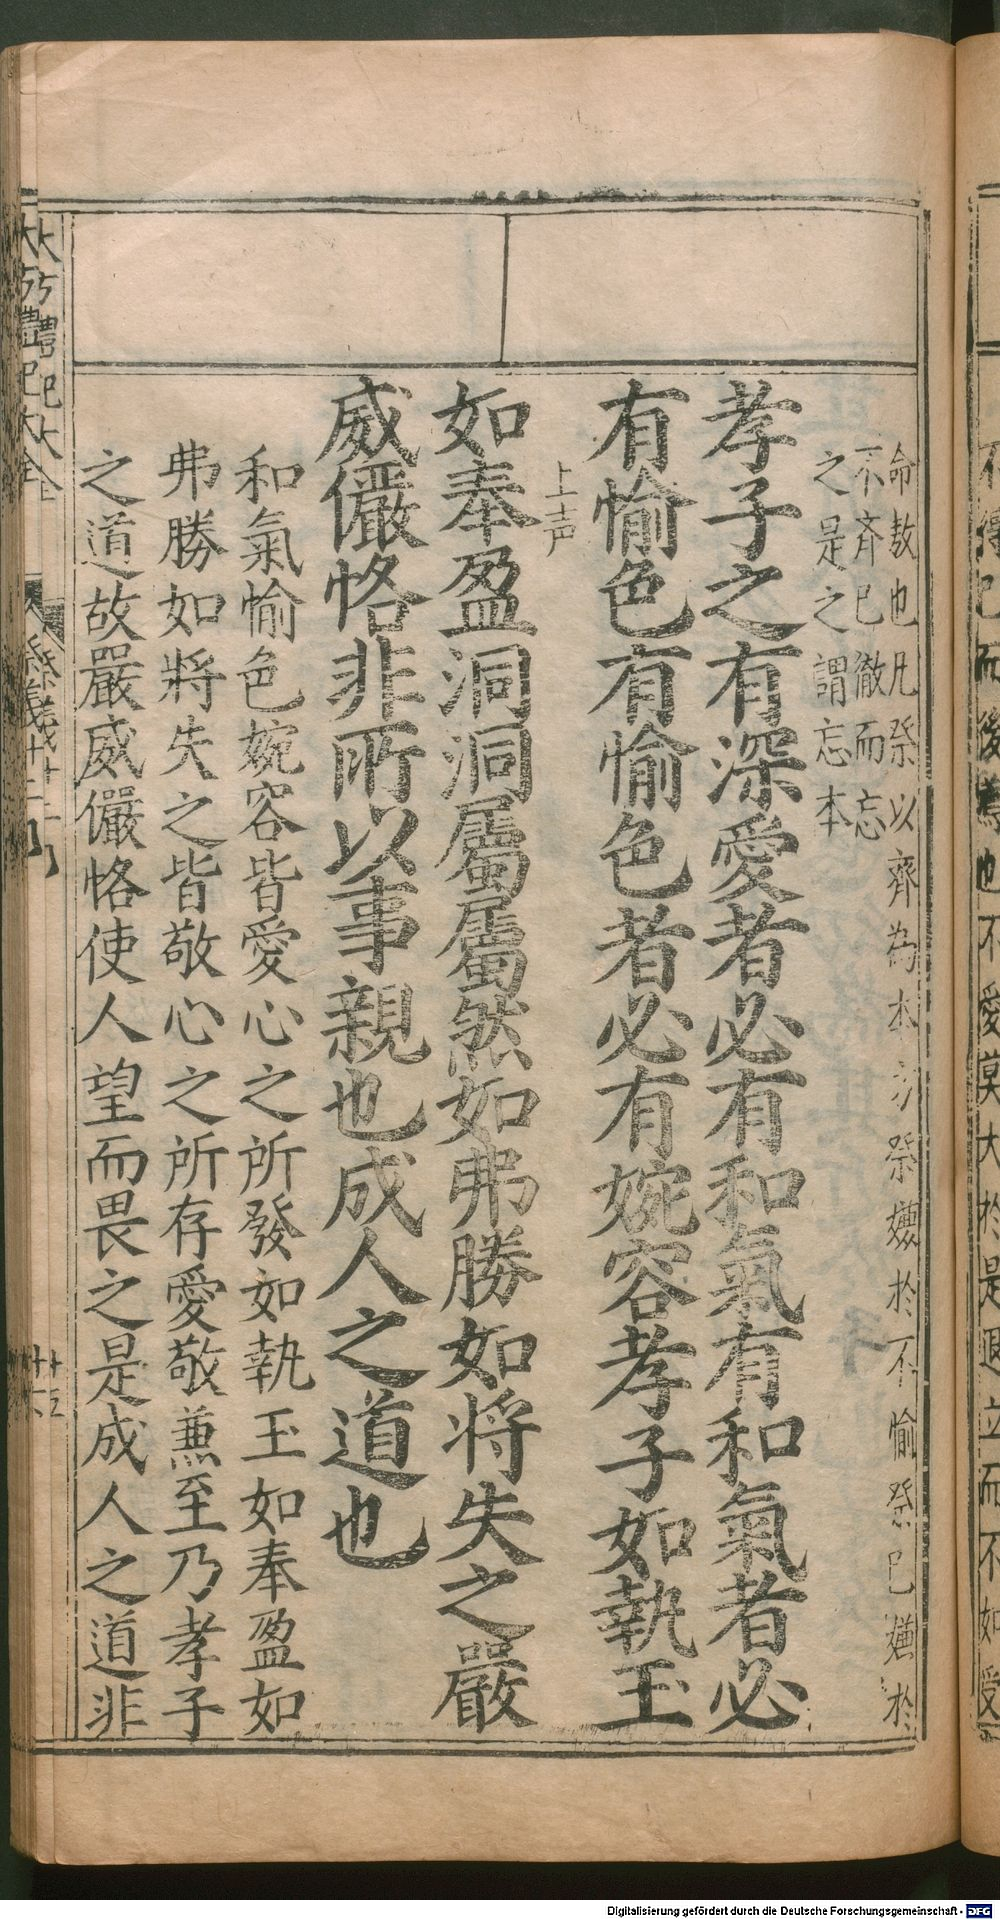 命敖也凡祭以齊為本方祭嫌於不愉祭已嫌於
不斉已徹而忘
之是之謂忘本
孝子之有深愛者必有和氣有和氣者必
有愉色有愉色者必有婉容孝子如執玉
上声
如奉盈洞洞屬屬然如弗勝如将失之嚴
威儼恪非所以事親也成人之道也
和氣愉色婉容皆愛心之所發如執玉如奉盈如
弗勝如將失之皆敬心之所存愛敬兼至乃孝子
之道故嚴威儼恪使人望而畏之是成人之道非
不得已而後薦也不愛其大於是退立而不如受
Digitalisierung gefördert durch die Deutsche Forschungsgemeinschaft - DFG